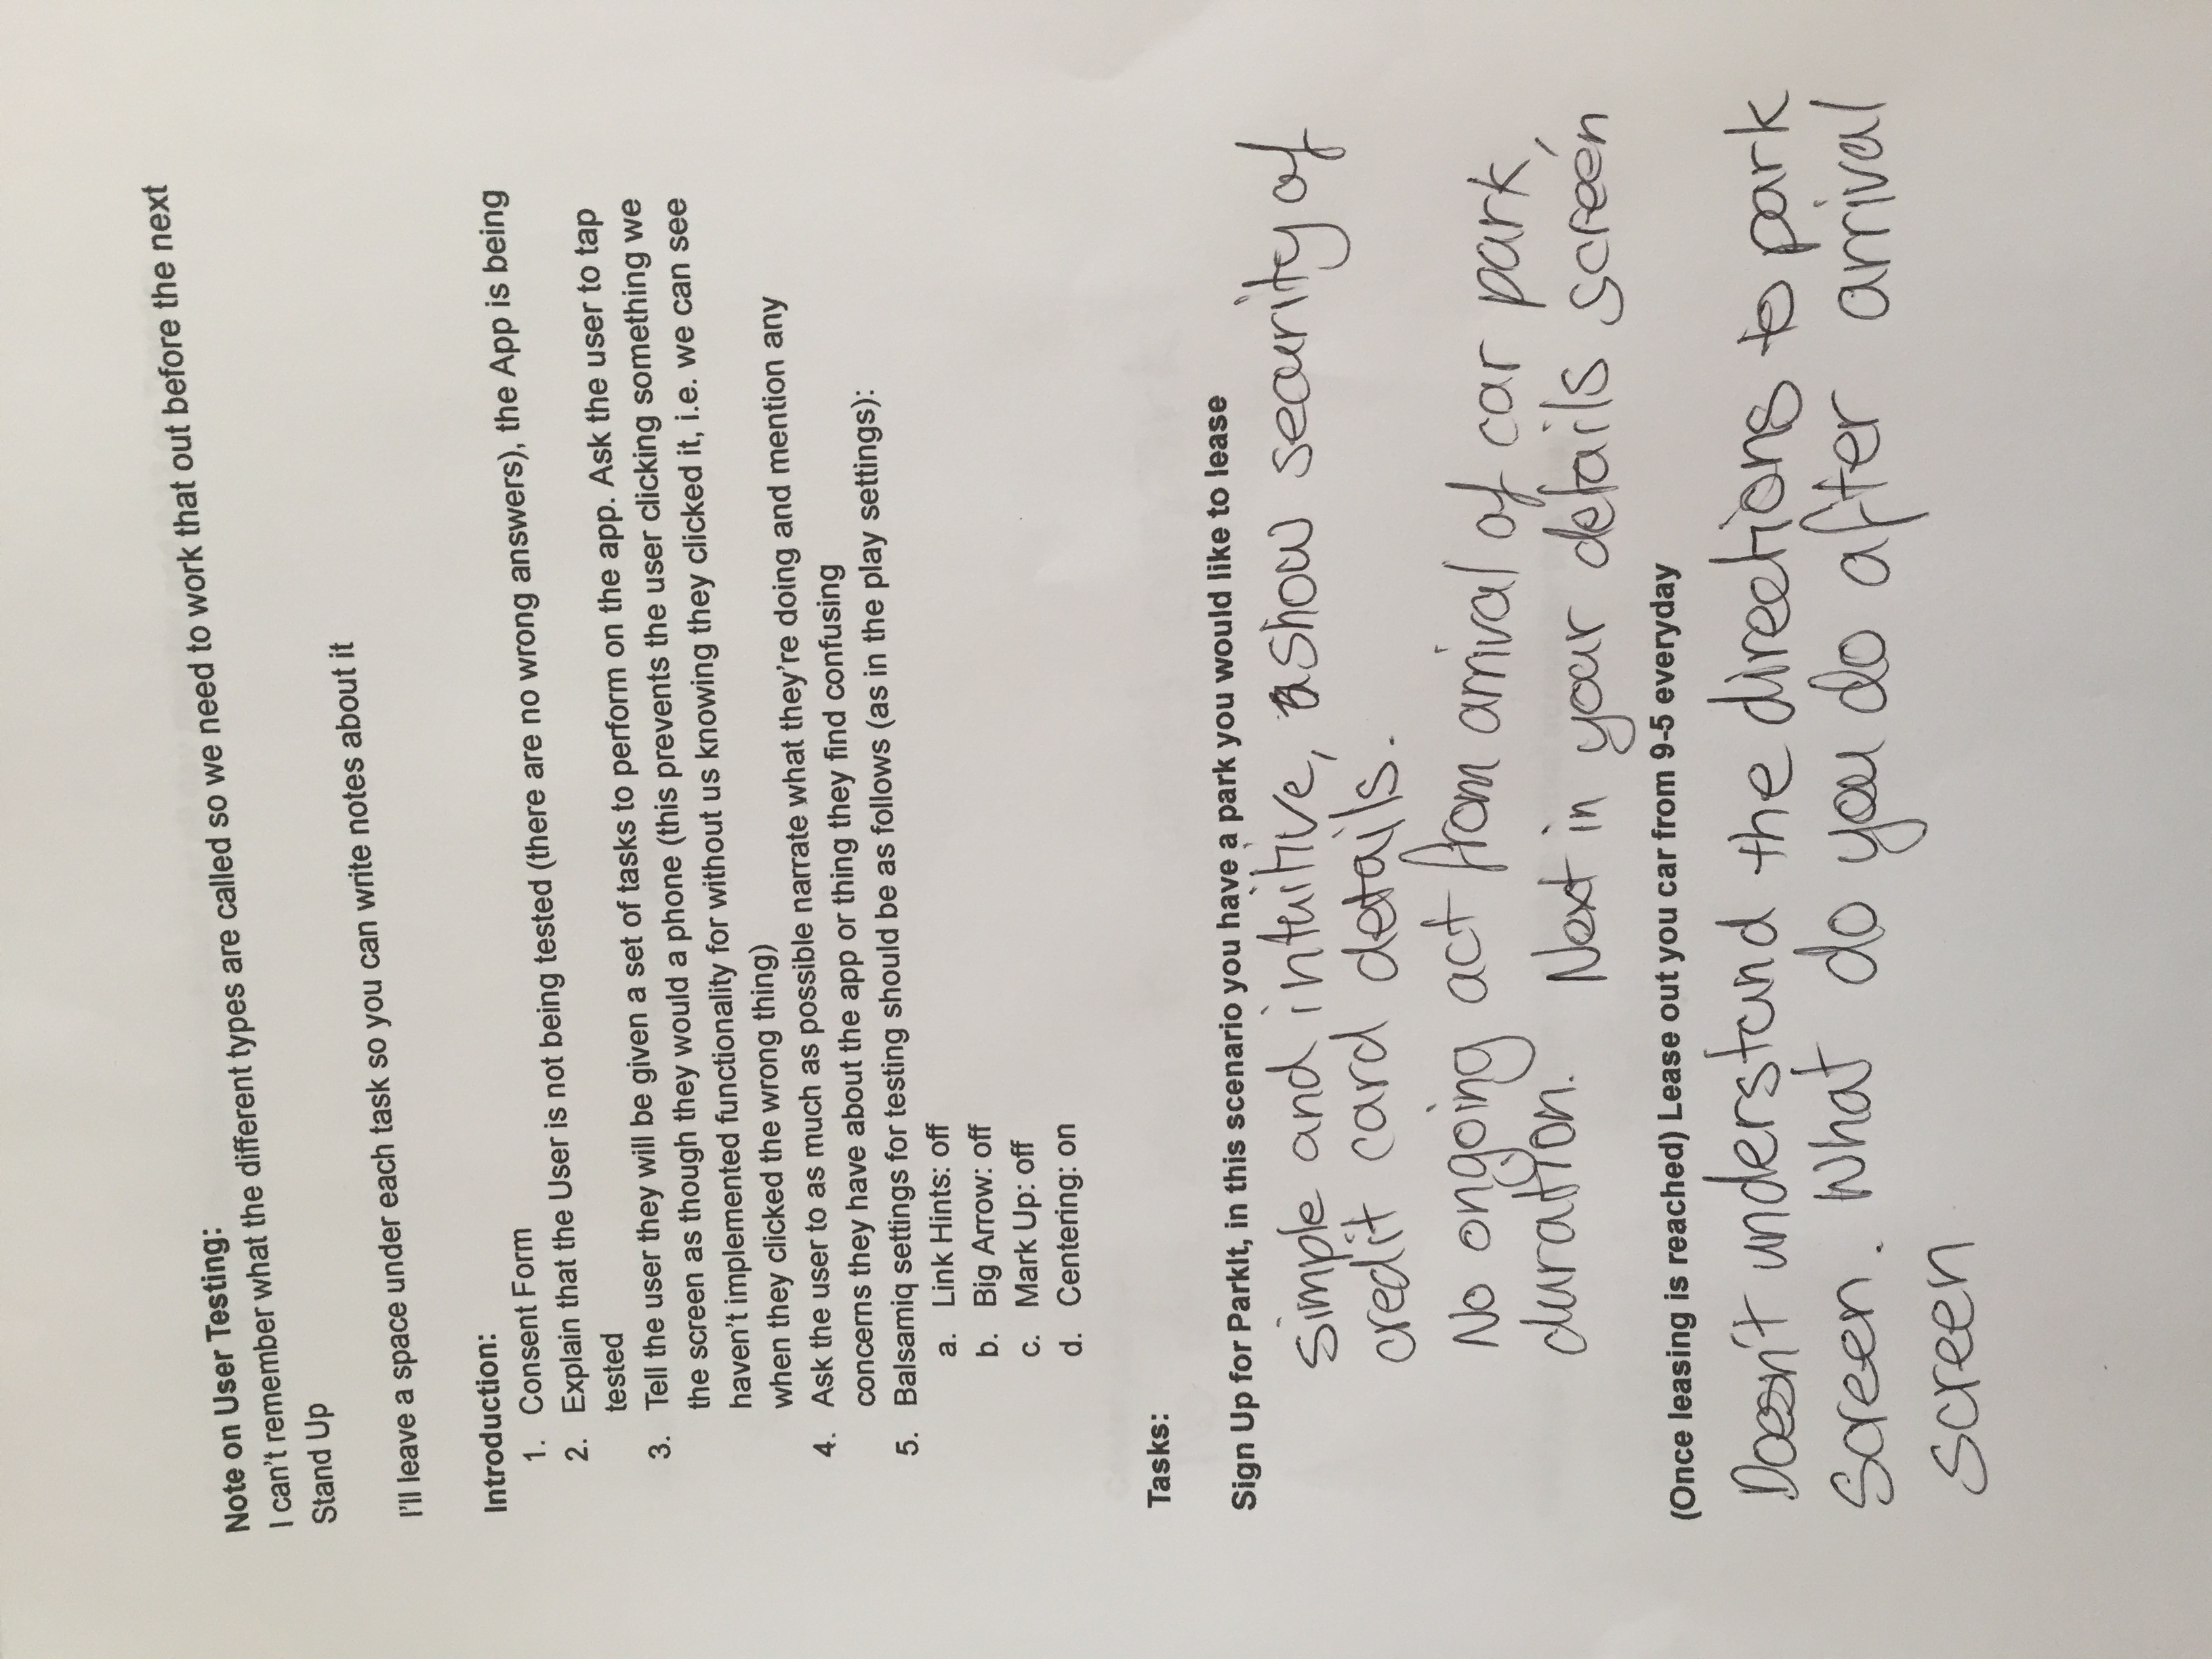 Note on User Testing:
I can't remember what the different types are called so we need to work that out before the next
Stand Up
I'll leave a space under each task so you can write notes about it
Introduction:
1. Consent Form
2. Explain that the User is not being tested (there are no wrong answers), the App is being
tested
3. Tell the user they will be given a set of tasks to perform on the app. Ask the user to tap
the screen as though they would a phone (this prevents the user clicking something we
haven't implemented functionality for without us knowing they clicked it, i.e. we can see
when they clicked the wrong thing)
4. Ask the user to as much as possible narrate what they're doing and mention any
concerns they have about the app or thing they find confusing
5. Balsamiq settings for testing should be as follows (as in the play settings):
a. Link Hints: off
b. Big Arrow: off
c. Mark Up: off
d. Centering: on
Tasks:
Sign Up for ParkIt, in this scenario you have a park you would like to lease
simple and intuitive, show security of
credit card details.
No ongoing act from arrival of car park,
duration. Next in your details screen
(Once leasing is reached) Lease out you car from 9-5 everyday
Doesn't understand the directions to park
screen. What do you do after arrival
screen